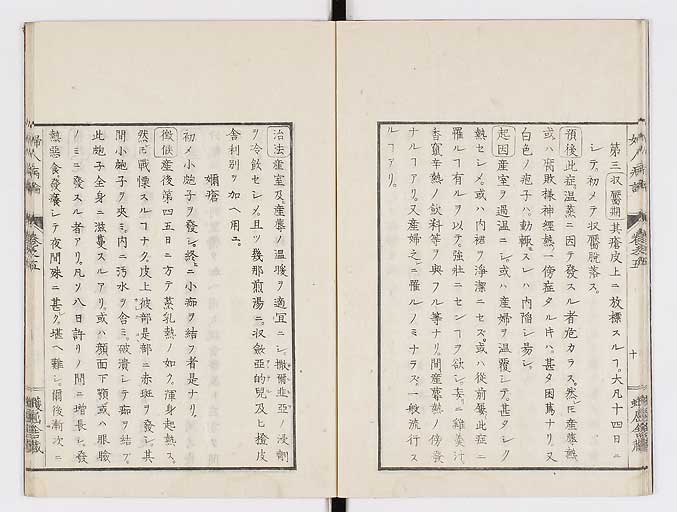 第三収靨期其瘡皮上ニ放標スルヿ。大凡十四日ニ
シテ。初メテ収靨脱落ス。
預後此症。温蒸ニ因テ發スル者危カラス。然𪜈産蓐熱
或ハ腐敗様神經熱ノ傍症タル𪜈ハ。甚タ困篤ナリ又
白色ノ疱子ハ。動輙スレハ内陥シ易シ。
起因産室ヲ過温ニシ。或ハ産婦ヲ温覆シテ。甚タシク
熱セシメ。或ハ内裙ヲ浄潔ニセス。或ハ從前屢此症ニ
罹ルヿ有ルヲ以テ。強壮ニセンヿヲ欲シ。妄ニ雞羹汁。
香竄辛熱ノ飲料等ヲ與フル等ナリ。間産蓐熱ノ傍發
ナルヿアリ。又産婦之ニ罹ルノミナラス。一般流行ス
ルヿアリ。
婦人病論 卷之五
十
治法産室及産蓐ノ温暖ヲ適宜ニシ。撒爾非亞ノ浸劑
ヲ冷飲セシメ。且ツ幾那煎湯ニ。収斂亞的兒及ヒ橙皮
舎利別ヲ加ヘ用ユ。
嬭瘡
初メ小皰子ヲ發シ。終ニ小痂ヲ結フ者是ナリ。
徴候産後第四五日ニ方テ蒸乳熱ノ如ク。渾身起熱ス。
然𪜈戰慄スルヿナク。皮上彼部是部ニ赤斑ヲ發シ。其
間小皰子ヲ夾ミ。内ニ汚水ヲ含ミ。破潰シテ痂ヲ結フ。
此皰子全身ニ滋蔓スルアリ。或ハ顔面下顎或ハ眼瞼
ノミニ發スル者アリ。凡ソ八日許リノ間ニ増長シ。發
熱惡食。發癢シテ夜間殊ニ甚タ堪ヘ難シ。爾後漸次ニ
婦人病論 卷之五